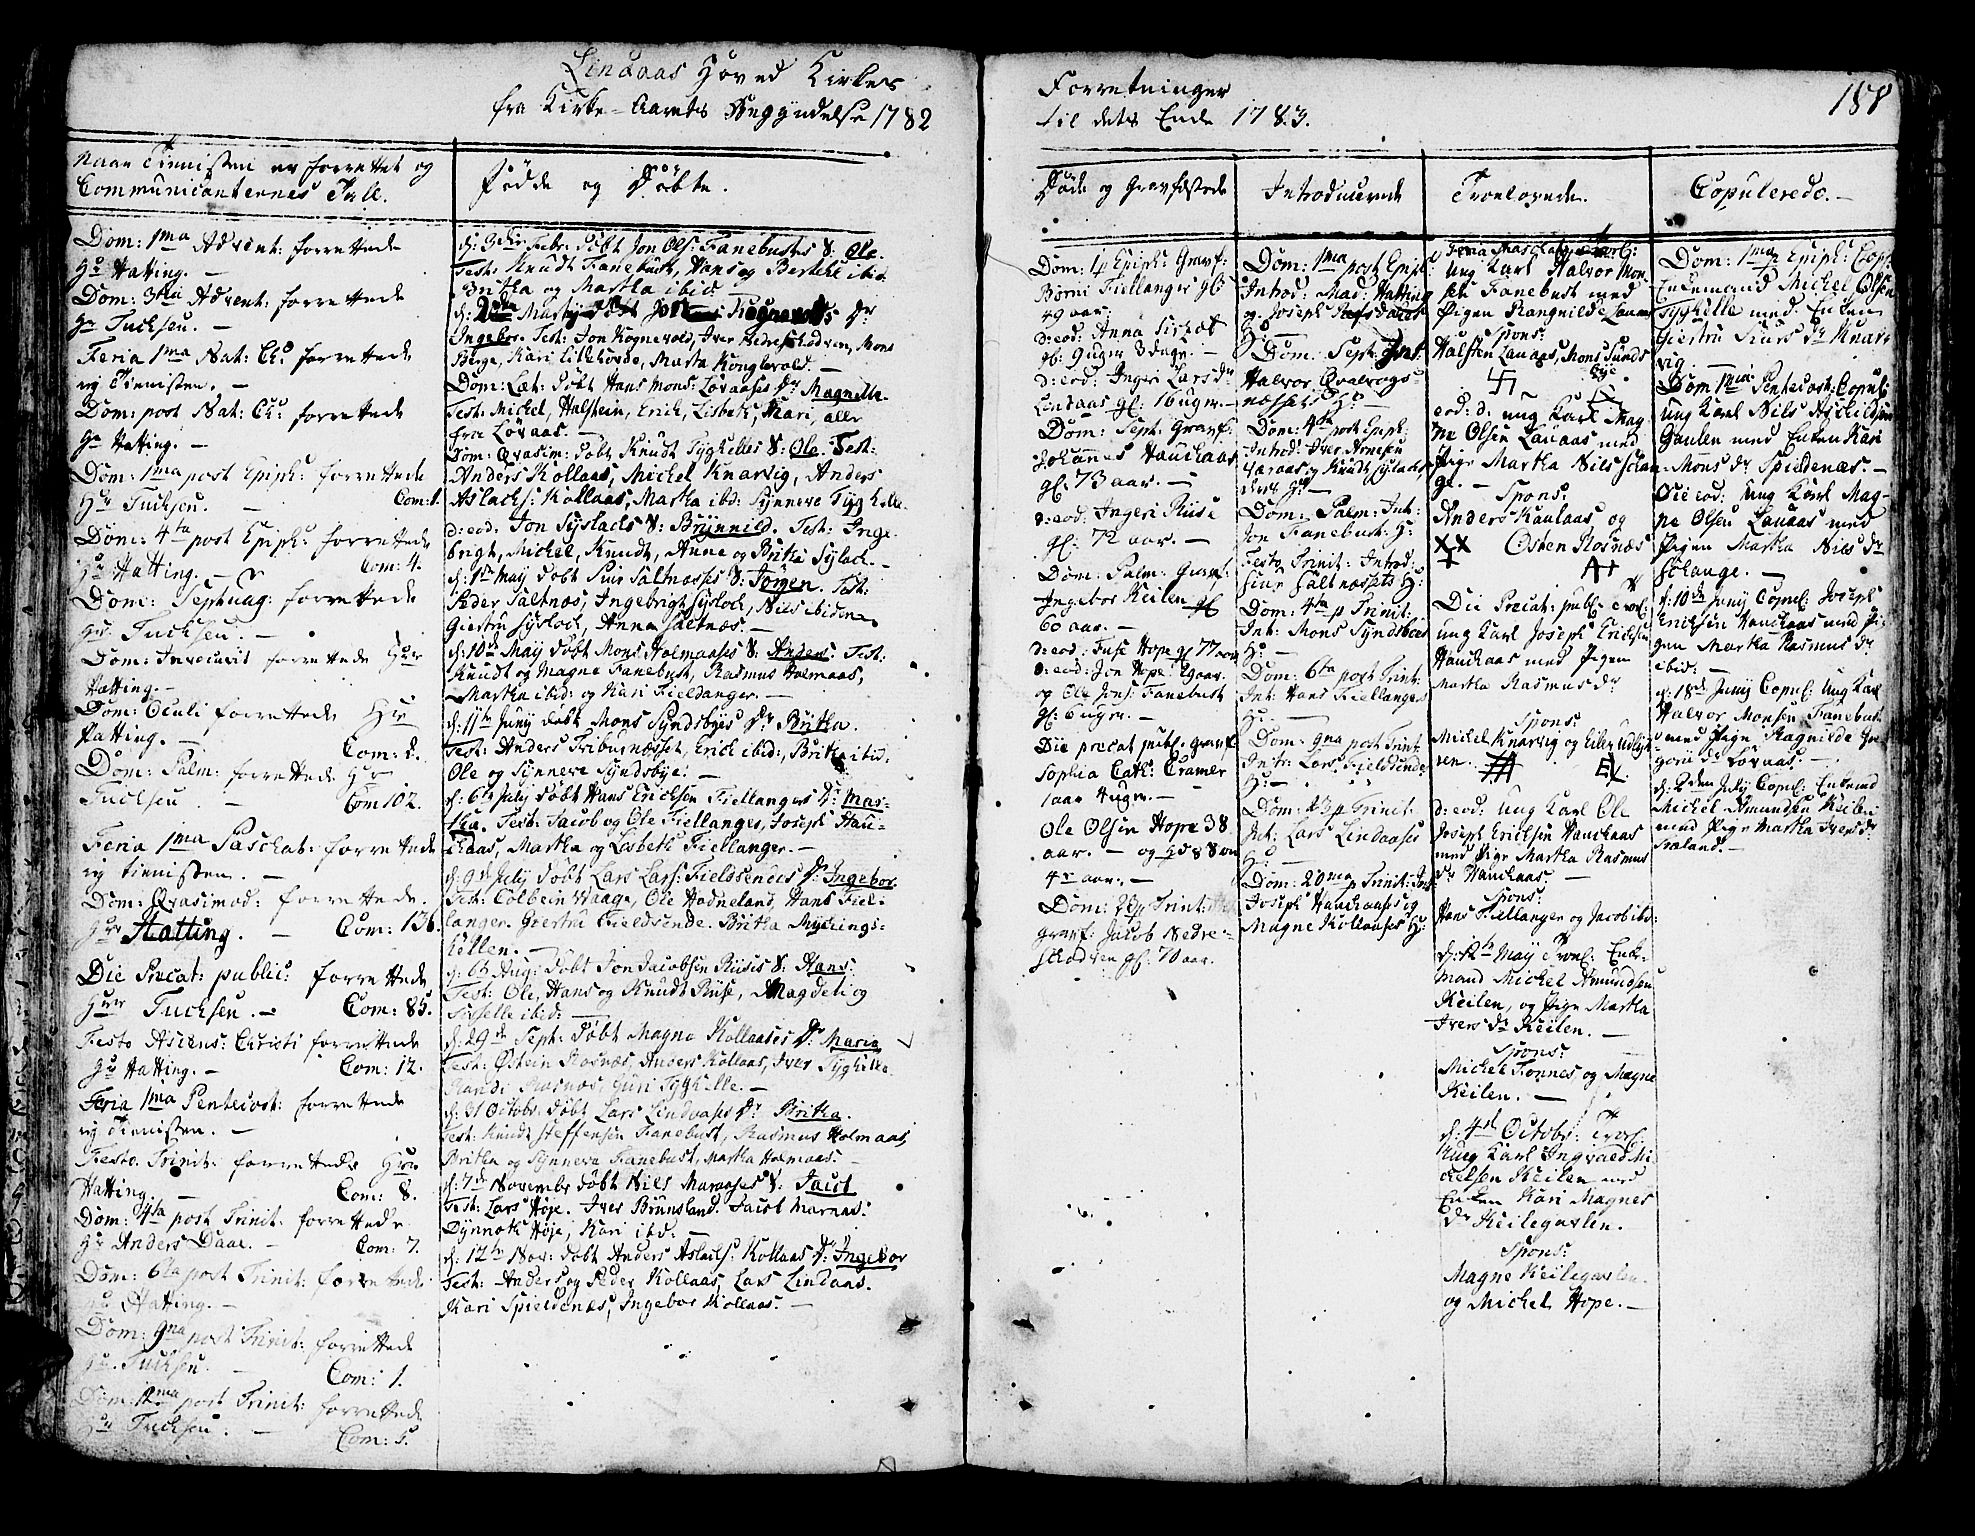 Lindaas Hoved Kirkes
fra Kirke-Aarets Begyndelse 1782
Forretninger
til dets Ende 1783.
188
Naar Tienisten er forrettet og
Communicanternes Tall.
Dom: 1ma Advent: forrettede
Hr Hatting. —
Dom: 3tia Advent: forrettede
Hr Tuchsen. —
Feria 1ma Nat: Chr: forrettede
ey Tienisten. —
Dom: post Nat: Chr: forrettede
Hr Hatting. —
Dom: 1ma post Epiph: forrettede
Hr Tuchsen. — Com: 1.
Dom: 4ta post Epiph: forrettede
Hr Hatting. — Com: 4.
Dom: Septuag: forrettede
Hr Tuchsen. —
Dom: Invocavit forrettede Hr
Hatting. —
Dom: Oculi forrettede Hr
Hatting. — Com: 2.
Dom: Palm: forrettede Hr
Tuchsen — Com 102.
Feria 1ma Paschat: forrettede
ey tienisten. —
Dom: Qvasimod: forrettede.
Hr Hatting. — Com: 136.
Die Precat: public: forrettede
Hr Tuchsen. — Com: 85.
Festo Ascens: Christi forrettede
Hr Hatting. — Com: 12.
Feria 1ma Pentecost: forrettede
ey Tienisten. —
Festo Trinit: forrettede Hr
Hatting. — Com: 8.
Dom: 4ta post Trinit: forrettede
Hr Anders Daae. — Com: 7.
Dom: 6ta post Trinit: forrettede
Hr Hatting. —
Dom: 9na post Trinit: forrettede
Hr Tuchsen. — Com: 1.
Dom: 12ma post Trinit: forrettede
Hr Tuchsen. — Com: 5.
Fødde og Døbte.
d: 3die Febr: døbt Jon Ols: Fanebustes S: Ole.
Test: Knudt Fanebust, Hans og Berthe ibid.
Britha og Martha ibid.
d: Martj døbt Dr
Ingebor. Test: Jon Kognevold, Iver Nedreschodven, Mons
Børge, Kari Lillehovde, Marta Konglevold. —
Dom: Læt: døbt Hans Mons: Løvaases Dr Magnille.
Test: Michel, Halstein, Erich, Lisbeth, Mari, alle
fra Løvaas. —
Dom: Qvasim: døbt Knudt Tyghelles S: Ole. Test:
Anders Kollaas, Michel Knarvig, Anders
Aslachs: Kollaas, Martha ibd: Synneve Tyghelle.
d: eod: Jon Syslachs S: Brynnild. Test: Inge-
brigt, Michel, Knudt, Anne og Britha Syslach. —
d: 1ste May døbt Siur Saltnæsses S: Jørgen. Test:
Peder Saltnæs, Ingebrigt Syslach, Nils ibidem
Giertru Syslach, Anna Saltnæs. —
d: 10de May døbt Mons Holmaases S: Anders. Test:
Knudt og Magne Fanebust, Rasmus Holmaas,
Martha ibid: og Kari Fieldanger. —
d: 11te Juny døbt Mons Syndsbyes Dr Britha.
Test: Anders Triburnæsset, Erich ibid: Britha ibid.
Ole og Synneve Syndsbye. —
d: 6te July døbt Hans Erichsen Fiellanges Dr Mar-
tha. Test: Jacob og Ole Fiellanger, Joseph Hau-
chaas, Martha og Lisbeth Fiellanger. —
d: 9de July døbt Lars Lars: Fieldsendes Dr Ingebor.
Test: Colbein Waage, Ole Hodneland, Hans Fiel-
langer. Giertru Fieldsende. Britha Myckings-
tellen. —
d: 6te Aug: døbt Jon Jacobsen Riises S: Hans.
Test: Ole, Hans og Knudt Riise, Magdeli og
Sisselle ibid: —
d: 29de Sept: døbt Magne Kollaases Dr Maria
Test: Østein Rosnæs, Anders Kollaas, Iver Tyghelle.
Randi Rosnæs, Guri Tyghelle. —
d: 31 Octobr: døbt Lars Lindaases Dr Britha.
Test: Knudt Steffensen Fanebust, Rasmus Holmaas,
Britha og Synneva Fanebust, Martha Holmaas. —
d: 7de Novembr døbt Nils Maraases S: Jacob
Test: Lars Høje. Iver Brunsland. Jacob Marnas:
Dynnoth Høje, Kari ibd: —
d: 12te Nov: døbt Anders Aslachs: Kollaas Dr: Ingebor
Test: Anders og Peder Kollaas, Lars Lindaas.
Kari Spieldenæs, Ingebor Kollaas. —
Døde og Gravfæstede
Dom: 4 Epiph: Gravf:
Børni Fiellanger gl:
49 aar.
d: eod: Anna
gl: 9 uger 3 dage. —
d: eod: Ingeri Larsdr
Lindaas gl: 16 uger. —
Dom: Sept: Gravf:
Johannes Hauchaas
gl. 73 aar. —
d: eod: Ingeri Riise
gl: 72 aar. —
Dom: Palm: Gravf:
Ingebor Keilen gl
60 aar. —
d: eod: Fuse Hope gl 77 aar
d: eod: Jon Hope 29 aar.
og Ole Jons: Fanebust
gl: 6 uger. —
Die precat publ. gravf
Sophia Cath: Cramer
1 aar 4 uger. —
Ole Olsen Hope 38
aar. —
4r aar. —
Dom: Trinit:
Gravf: Jacob Nedre-
schodven gl. 70 aar.
Introducerede
Dom: 1ma post Epiph:
Introd: Mad: Hatting
og Joseph
H: —
Dom: Sept: Int:
Halvor Qvalvogs-
næssets H: —
Dom: 4ta post Epiph:
Introd: Iver Arnesen
og Knudt
H: —
Dom: Palm: Int:
Jon Fanebust: H:
Festo Trinit: Introd:
Siur Saltnæssets H:
Dom: 4ta p Trinit:
Int: Mons Syndsbyes
H: —
Dom: 6ta post Trint:
Int: Hans Fiellangers
H: —
Dom: 9na post Trint:
Intr: Lars Fieldsendes
H: —
Dom: 13 p Trinit:
Int: Lars Lindaases
H: —
Dom: 20ma p Trinit: Int
Joseph Hauchaases og
Magne Kollaases H:
Troelovede.
Feria Paschat: Trol:
Ung Karl Halvor Mon-
sen Fanebust med
Pigen Rangnilde Lavaas
Spons:
Halsten Lavaas, Mons Sunds
bye
eod: d: ung Karl Mag
ne Olsen Lavaas med
Pige Martha Nils Schan
ge. —
Spons:
Anders Kaulaas og
XX Østen Rosnæs
Die Precat: publ. Trol:
ung Karl Joseph Erichsen
Hauchaas med Pigen
Martha Rasmus dr
Spons:
Michel Knarvig og Eiler Udlyt-
ren.
d: eod: Ung Karl Ole
Joseph Erichsen Hauchaas
med Pige Martha Rasmus
dr Hauchaas —
Spons:
Hans Fiellanger og Jacob ibd:
d: 12te May Trol: Enke-
mand Michel Amundsen
Keilen, og Pige Martha
Ivers dr Keilen. —
Spons:
Michel Fonnes, og Magne
Keilen. —
d: 4de Octobr: Trol:
Ung Karl Ingvald Mi-
chelsen Keilen med
Enken Kari Magnes
dr Keilegavlen.
Spons:
Magne Keilegavlen.
og Michel Hope. —
Copulerede. —
Dom: 1ma Epiph: Cop:
Enkemand Michel Olsen
Tyghelle med Enken
Giertru Siurs dr Knar-
vig —
Dom 1ma Pentecost: Copul:
Ung Karl Nils Aschildsen
Gaulen med Enken Kari
Mons dr Spieldenæs. —
Die eod: Ung Karl Mag-
ne Olsen Lavaas med
Pigen Martha Nils dr
Schange. —
d: 10de Juny Copul: Joseph
Erichsen Hauchaas med Pi-
gen Martha Rasmus dr
ibid: —
d: 18de Juny Copul: Ung Karl
Halvor Monsen Fanebust
med Pige Ragnilde Gre-
gorii dr Lovaas. —
d: 2den July Copul: Enkemd
Michel Amundsen Keilen
med Pige Martha Ivers dr